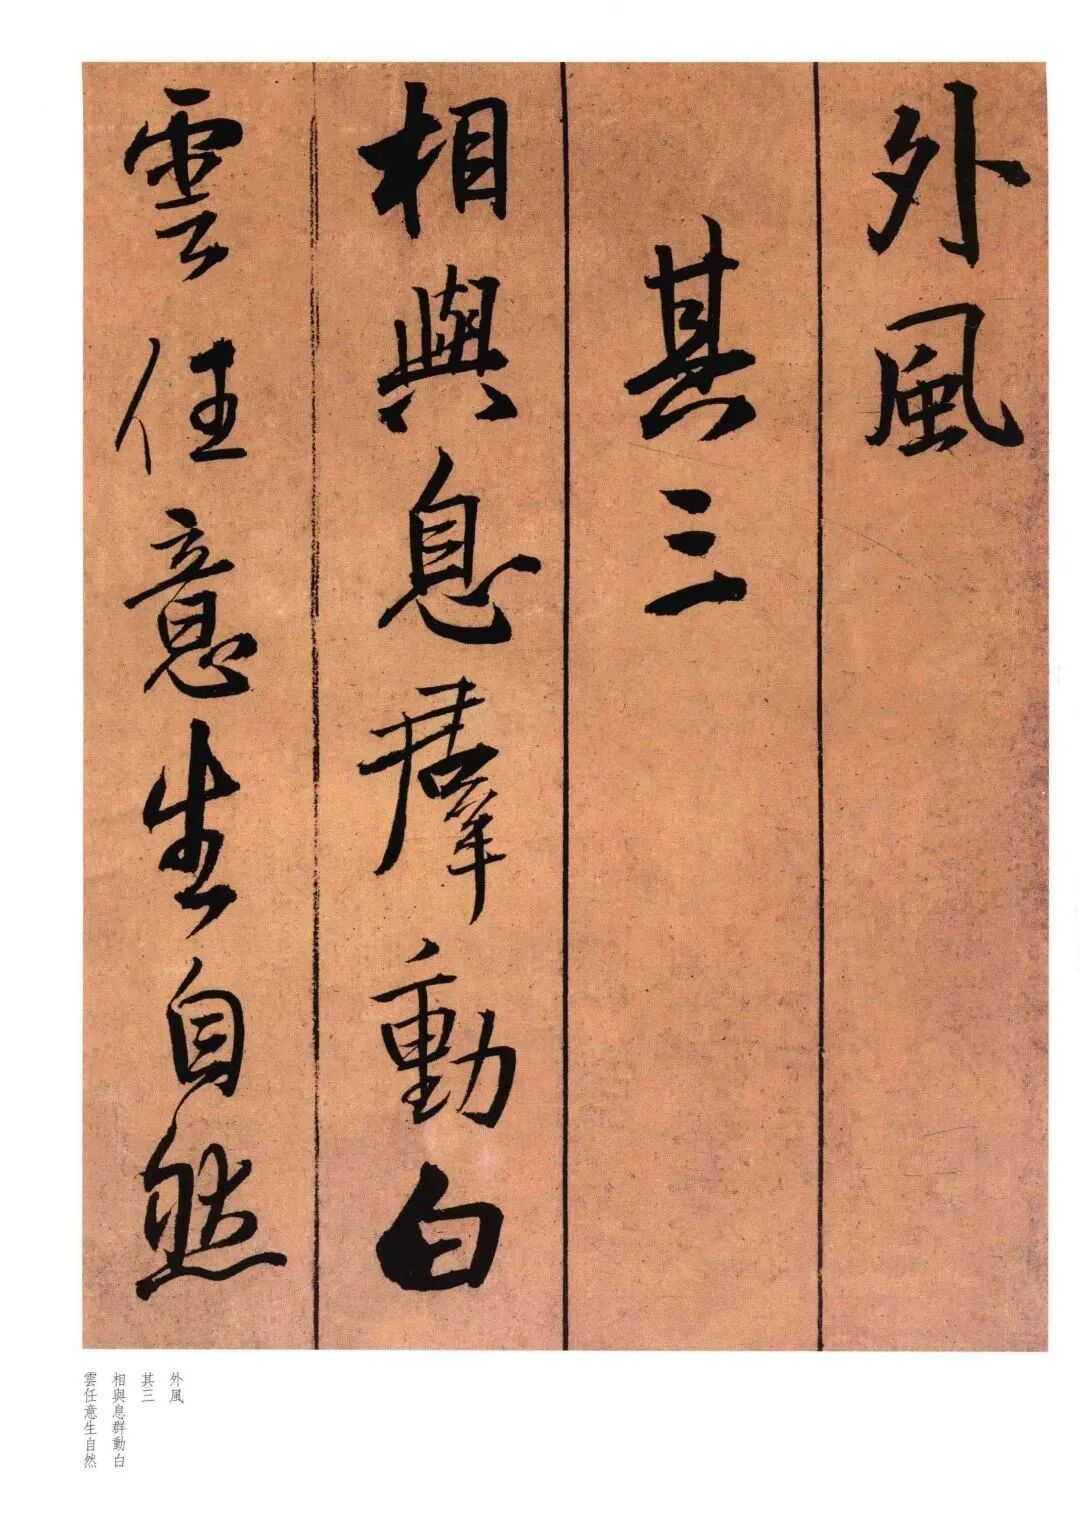 外風
其三
相與息羣動白
雲任意生自然
外風
其三
相與息群動白
雲任意生自然